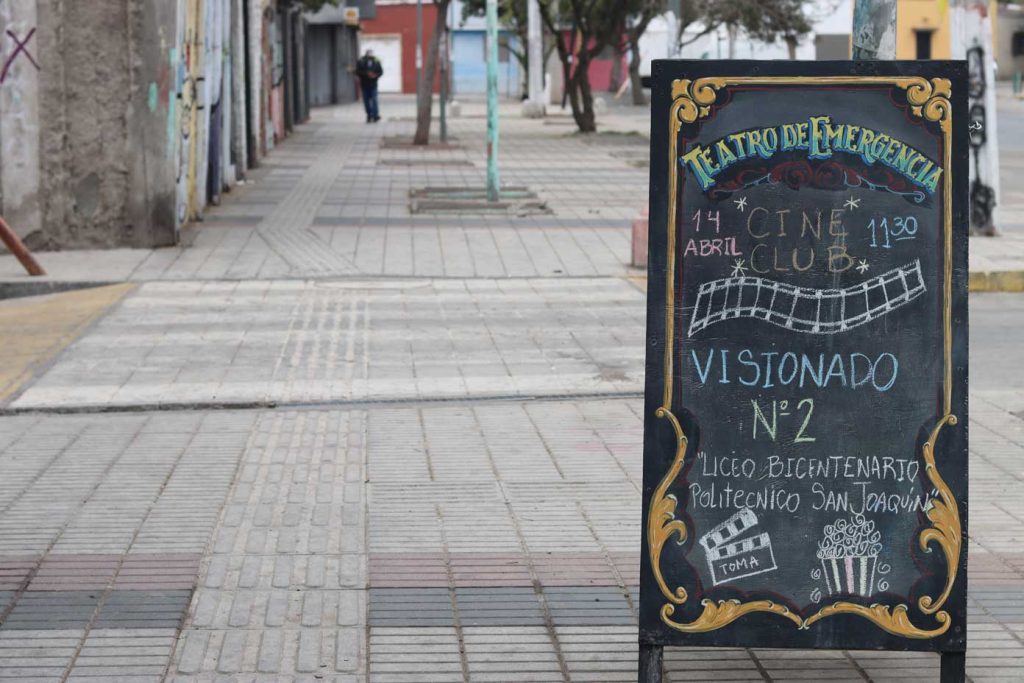 TEATRO DE EMERGENCIA
14 ABRIL
CINE CLUB
1130
VISIONADO
Nº 2
"LICEO BICENTENARIO
POLITECNICO SAN JOAQUIN"
TOMA